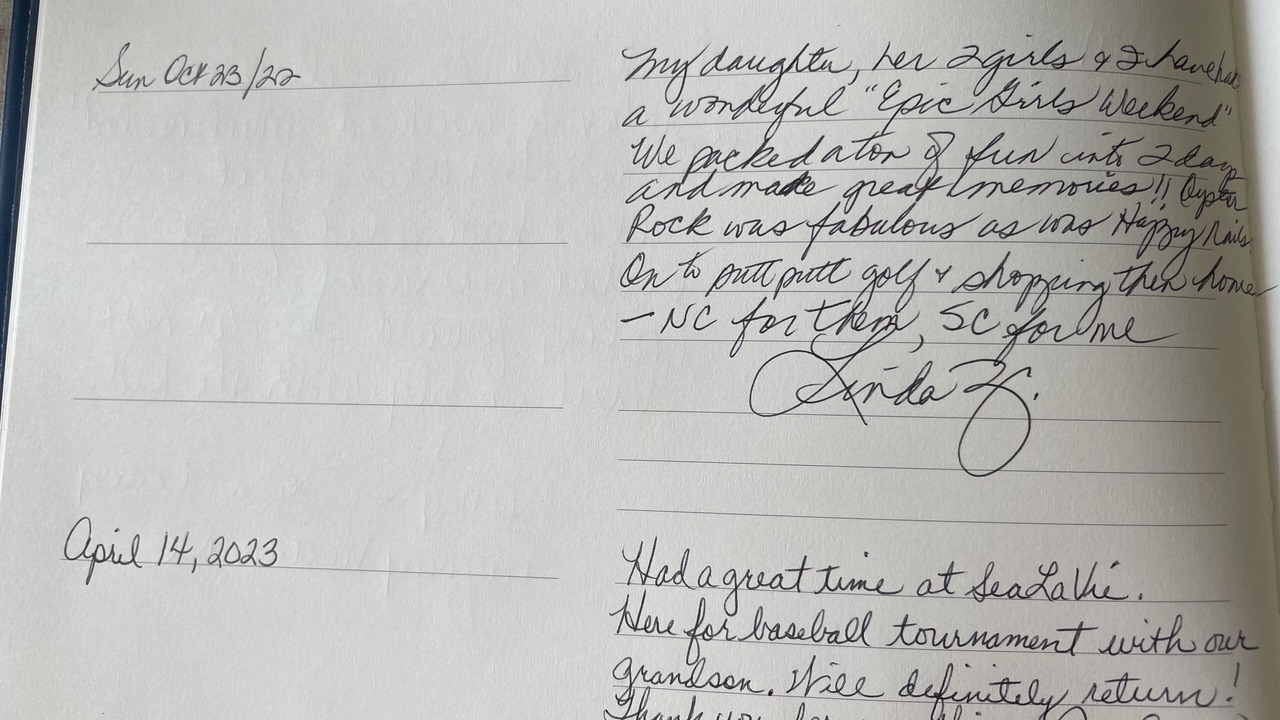 Sun Oct 23/22
My daughter, her 2 girls & I have had
a wonderful "Epic Girls Weekend"
We packed a ton of fun into 2 days
and made great memories!! Oyster
Rock was fabulous as was Happy Nails
On to putt putt golf & shopping then home
— NC for them, SC for me
Linda Z.
April 14, 2023
Had a great time at SeaLaVie.
Here for baseball tournament with our
grandson. Will definitely return!
Thank you for